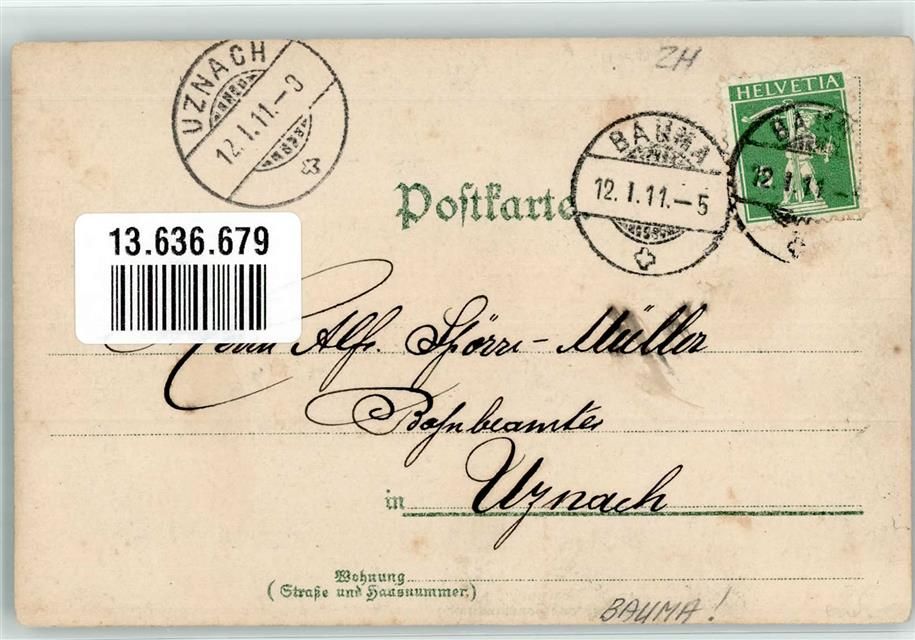 UZNACH
12.I.11.-3
ZH
HELVETIA
BAUMA
12.I.11.-5
BAUMA
12.I.11.-
Postkarte
13.636.679
Herrn Alf. Spörri-Müller
Bahnbeamter
in Uznach
Wohnung
(Straße und Hausnummer.)
BAUMA!